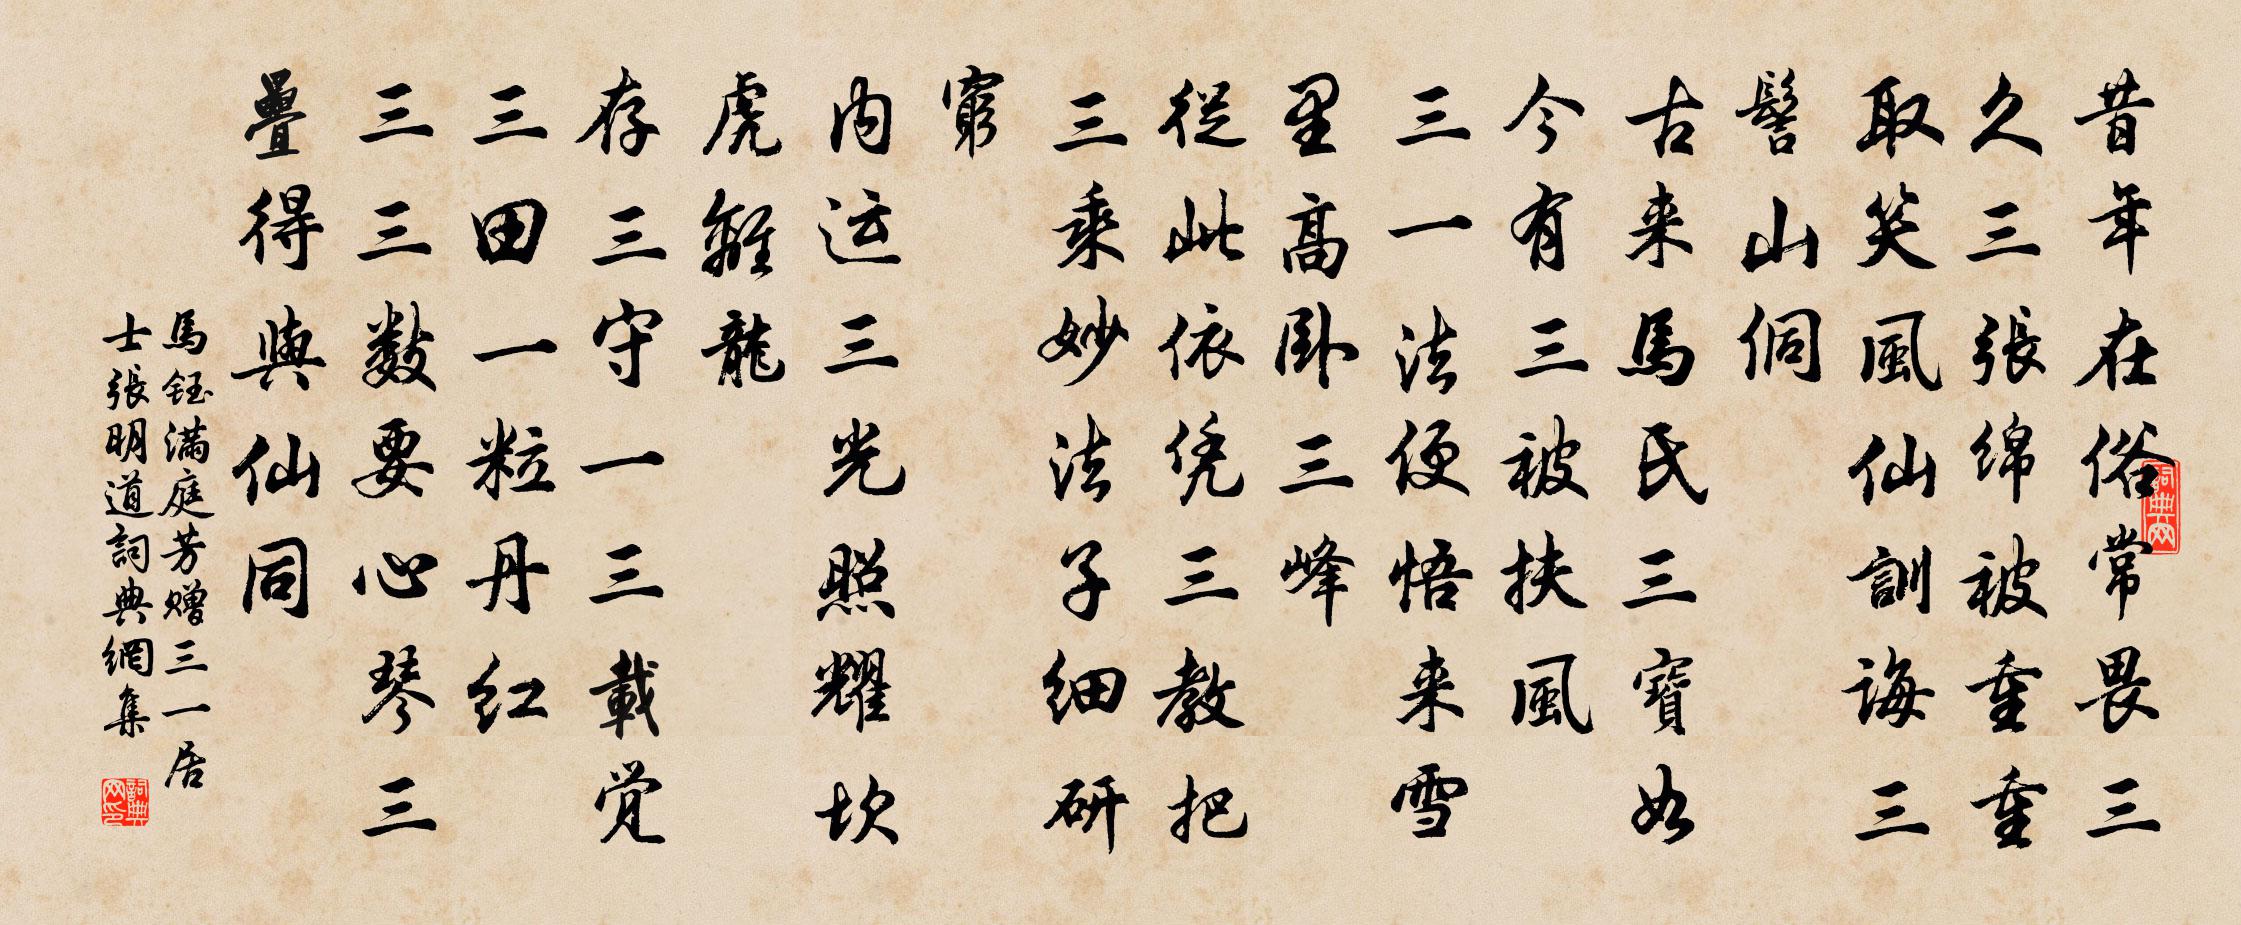 昔年在俗常畏三
久三張綿被重重
取笑風仙訓誨三
髻山侗
古来馬氏三寶如
今有三被扶風
三一法便悟来雪
里高卧三峰
従此依凭三教把
三乘妙法子细研
窮
内运三光照耀坎
虎離龍
存三守一三載覚
三田一粒丹红
三三数要心琴三
疊得與仙同
馬鈺滿庭芳赠三一居
士張明道詞典網集
詞典网
詞典网印